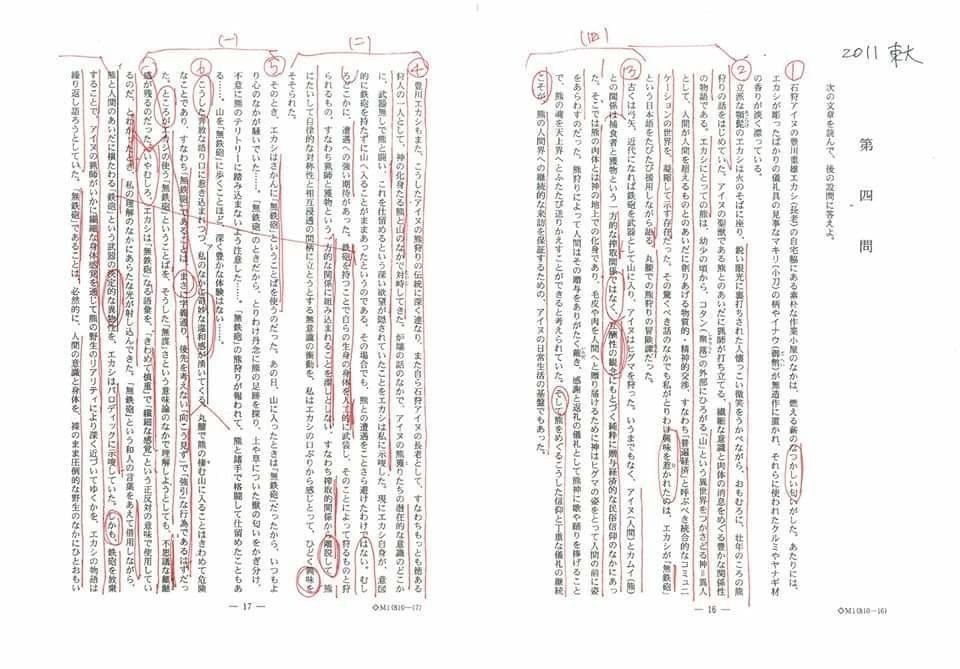 2011 東大
第四問
次の文章を読んで、後の設問に答えよ。
(四)
①
石狩アイヌの豊川重雄エカシ(長老)の自宅脇にある素朴な作業小屋のなかは、燃える薪のなつかしい匂いがした。あたりには、
エカシが彫ったばかりの儀礼具の見事なマキリ(小刀)の柄やイナウ(御幣)が無造作に置かれ、それらに使われたクルミやヤナギ材
の香りが淡く漂っている。
②
立派な顎髭のエカシは火のそばに座り、鋭い眼光に裏打ちされた人懐っこい微笑をうかべながら、おもむろに、壮年のころの熊
狩りの話をはじめていた。アイヌの聖獣である熊とのあいだに猟師が打ち立てる、繊細な意識と肉体の消息をめぐる豊かな関係性
の物語である。エカシにとっての熊は、幼少の頃から、コタン(集落)の外部にひろがる「山」という異世界をつかさどる神=異人
として、人間が人間を超えるものとのあいだに創りあげる物質的・精神的交渉、すなわち「普遍経済」と呼ぶべき統合的なコミュニ
ケーションの世界を、凝縮して示す存在だった。その驚くべき話のなかでも私がとりわけ興味を惹かれたのは、エカシが「無鉄砲」
という日本語をたびたび援用しながら語る、丸腰での熊狩りの冒険譚だった。
③
古くは弓矢、近代になれば鉄砲を武器として山に入り、アイヌはヒグマを狩った。いうまでもなく、アイヌ(人間)とカムイ(熊)
との関係は捕食者と獲物という一方的な搾取関係ではなく、互酬性の観念にもとづく純粋に贈与経済的な民俗信仰のなかにあっ
た。そこでは熊の肉体とは神の地上での化身であり、毛皮や肉を人間へと贈り届けるために神はヒグマの姿をとって人間の前に姿
をあらわすのだった。熊狩りによって人間はその贈与をありがたく戴き、感謝と返礼の儀礼として熊神に歌や踊りを捧げること
で、熊の魂を天上界へとふたたび送りかえすことができると考えられていた。そして熊をめぐるこうした信仰と丁重な儀礼の継続
こそが、熊の人間界への継続的な来訪を保証するための、アイヌの日常生活の基盤でもあった。
— 16 —
◇M1(810—16)
(二)
④
豊川エカシもまた、こうしたアイヌの熊狩りの伝統に深く連なり、また自ら石狩アイヌの長老として、すなわちもっとも秀でる
狩人の一人として、神の化身たる熊と山のなかで対峙してきた。炉端の話のなかで、アイヌの熊獲りたちの潜在的な意識のどこか
に、武器無しで熊と闘い、これを仕留めるという深い欲望が隠されていたことをエカシは私に示唆した。現にエカシ自身が、意図
的に鉄砲を持たずに山へ入ることがままあったというのである。その場合でも、熊との遭遇をことさら避けたわけではない。むし
ろどこかに、遭遇への強い期待があった。鉄砲を持つことで自らの生身の身体を人工的に武装し、そのことによって狩るものと狩
られるもの、すなわち猟師と獲物という一方的な関係に組み込まれることを潔しとしない、すなわち搾取的関係から離脱して、熊
にたいして自律的な対称性と相互浸透の間柄に立とうとする無意識の衝動を、私はエカシの口ぶりから感じとって、ひどく興味を
そそられた。
(一)
⑤
そのとき、エカシはさかんに「無鉄砲」ということばを使うのだった。あの日、山に入ったときは「無鉄砲」だったから、いつもよ
り心のなかが騒いでいた……。「無鉄砲」のときだから、とりわけ丹念に熊の足跡を探り、土や草についた獣の匂いをかぎ分け、
不意に熊のテリトリーに踏み込まないよう注意した……。「無鉄砲」の熊狩りが報われて、熊と諸手で格闘して仕留めたこともあ
る……。山を「無鉄砲」に歩くことほど、深く豊かな体験はない……。
⑥
こうした奔放な語り口に惹き込まれつつ、私のなかで奇妙な違和感が湧いてくる。丸腰で熊の棲む山に入ることはきわめて危険
なことであり、すなわち「無鉄砲」であることは、まさに字義通り、後先を考えない「向こう見ず」で「強引」な行為であるはずだっ
た。ところがエカシの使う「無鉄砲」ということばを、そうした「無謀」さという意味論のなかで理解しようとしても、不思議な齟齬
感が残るのだった。いやむしろ、エカシは「無鉄砲」なる語彙を、「きわめて慎重」で「繊細な感覚」という正反対の意味で使用してい
るのだ、とわかったとき、私の理解のなかにあらたな光が射し込んできた。「無鉄砲」という和人の言葉をあえて借用しながら、
熊と人間のあいだに横たわる「鉄砲」という武器の決定的な異物性を、エカシはパロディックに示唆していた。しかも、鉄砲を放棄
することで、アイヌの猟師がいかに繊細な身体感覚を通じて熊の野生のリアリティにより深く近づいてゆくかを、エカシの物語は
繰り返し語ろうとしていた。「無鉄砲」であることは、必然的に、人間の意識と身体を、裸のまま圧倒的な野生のなかにひとおもい
— 17 —
◇M1(810—17)